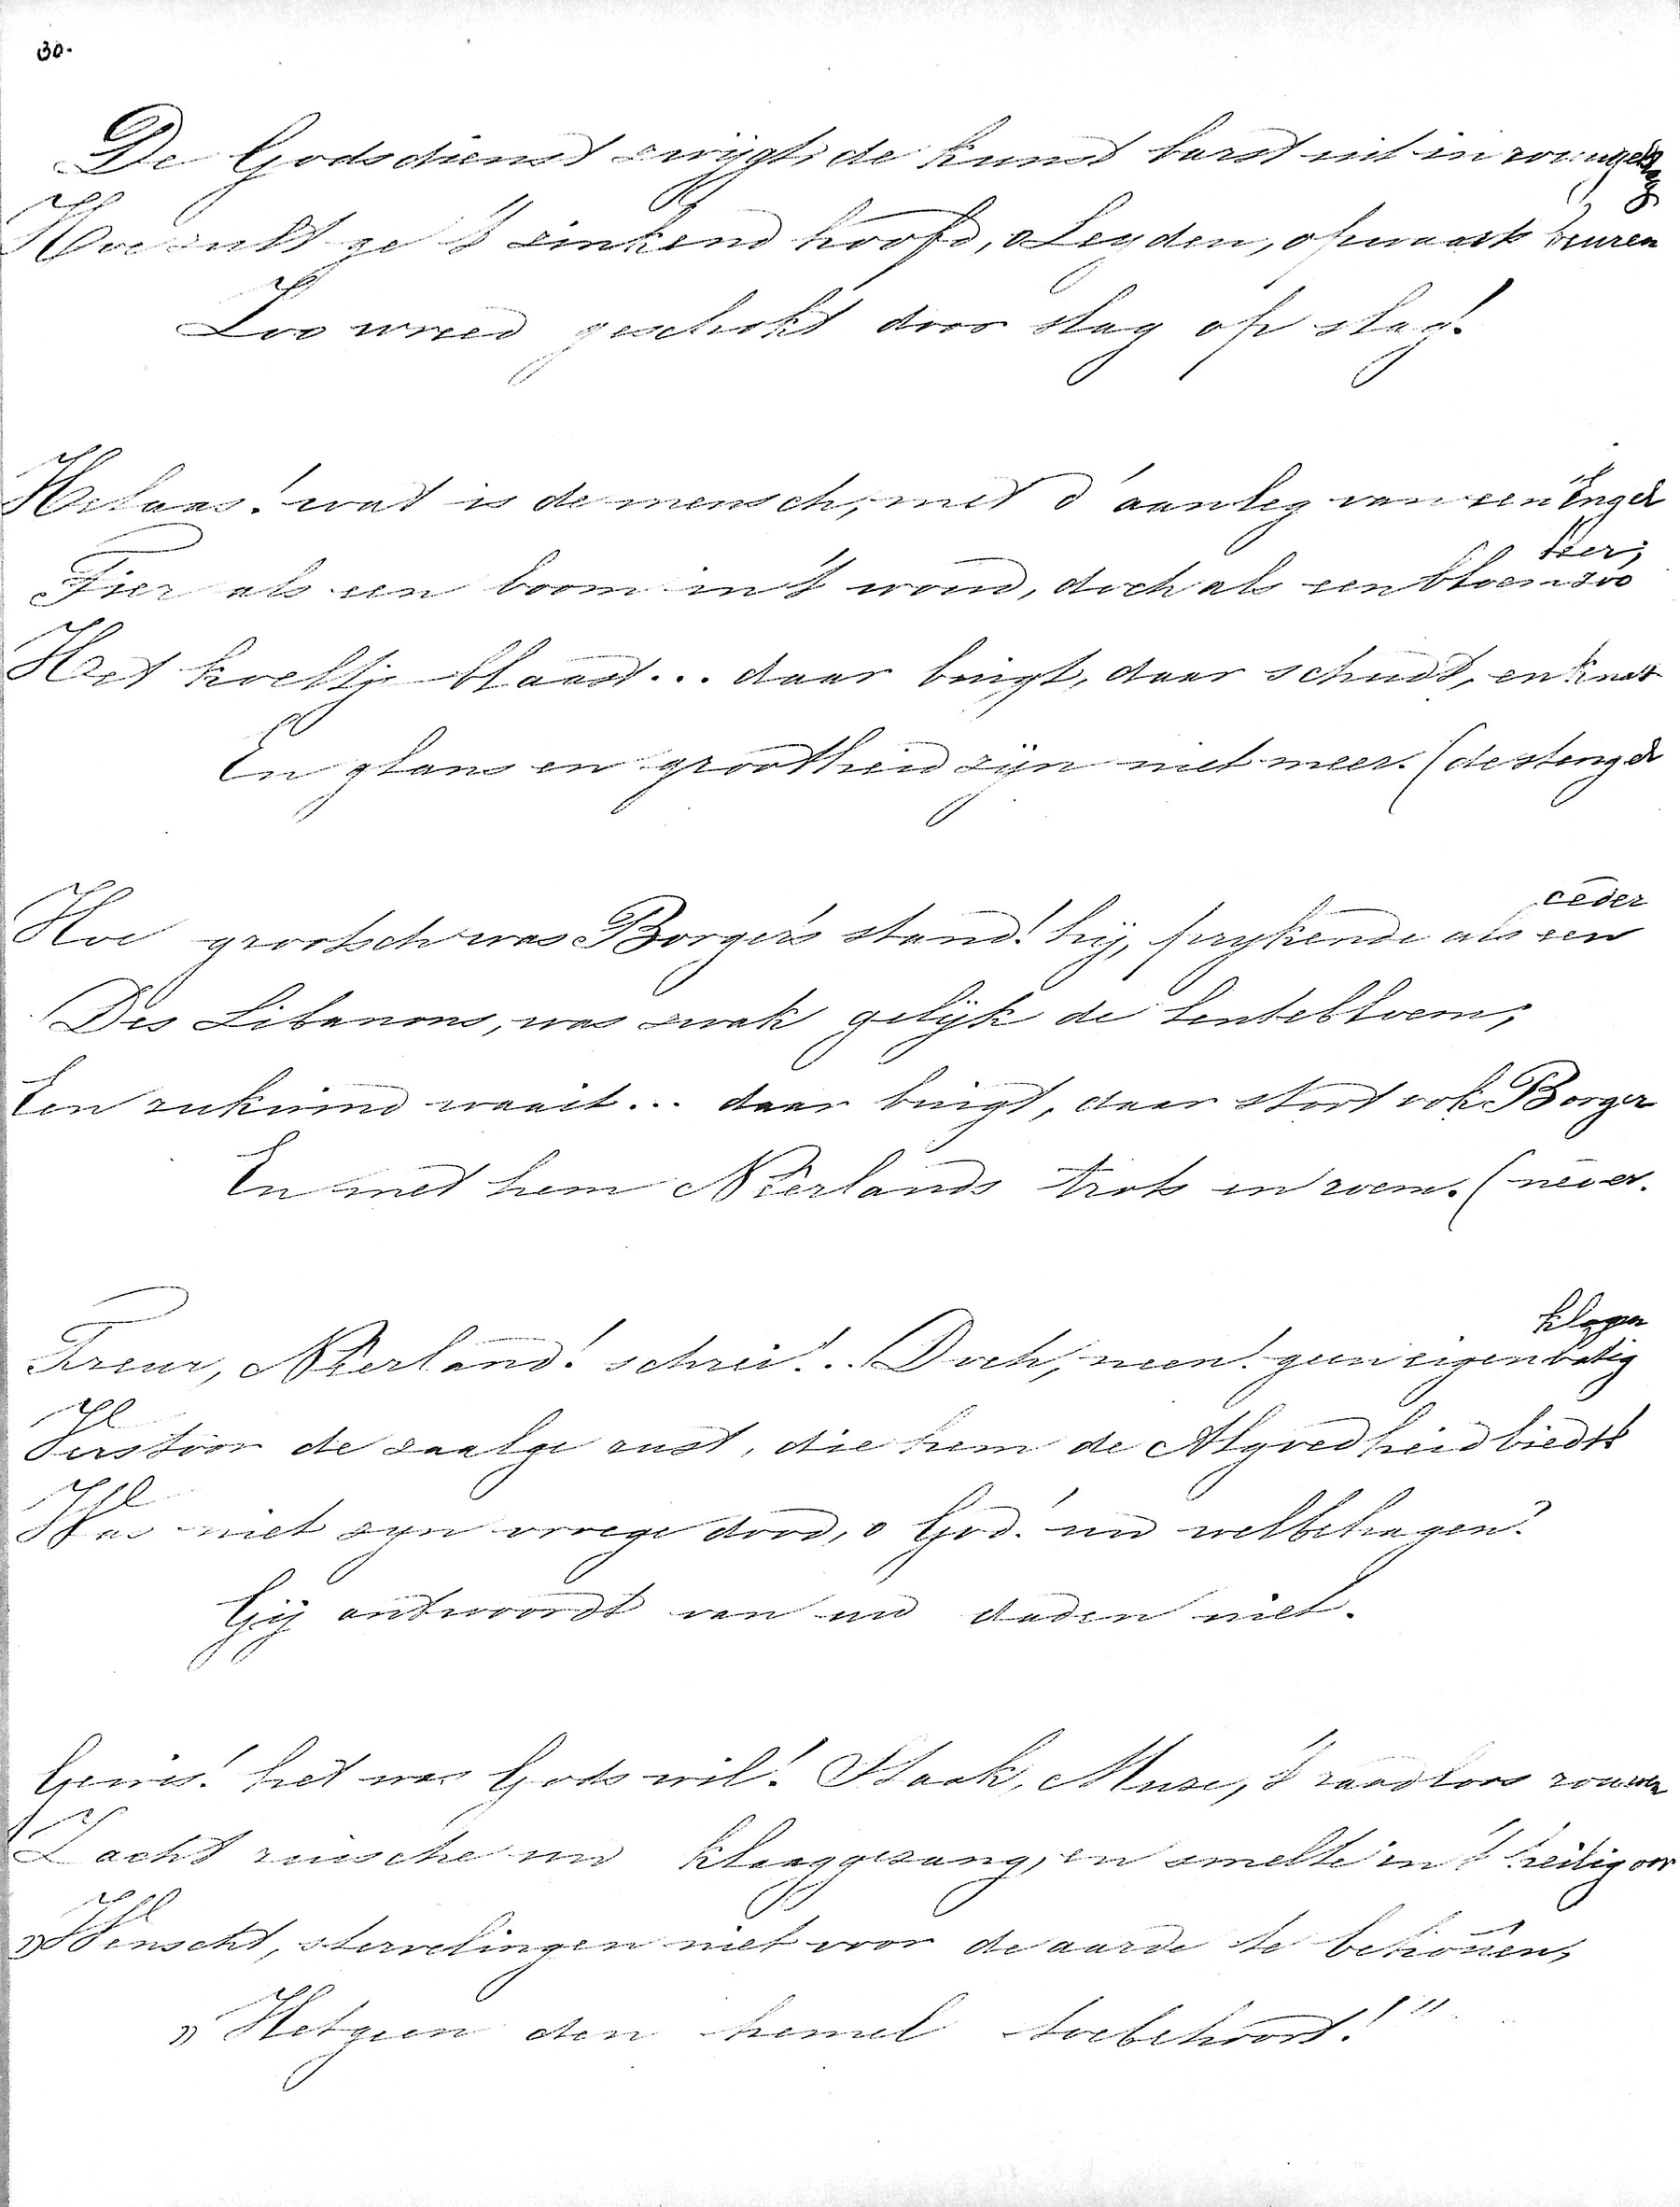 30.
De Godsdienst zwijgt; de kunst barst uit in rouwgeklag
Hoe zult ge 't zinkend hoofd, o Leyden, opwaarts beuren
Zoo wreed geschokt door slag op slag!
Helaas! wat is de mensch, met d'aanleg van een Engel
Fier als een boom in 't woud, doch als een bloem zoo teer;
Het koeltje blaast... daar buigt, daar schudt, en knakt
En glans en grootheid zijn niet meer. (de stengel
Hoe grootsch was Borger's stand! hij, prykende als een ceder
Des Libanons, was zwak gelijk de lentebloem;
Een rukwind waait... daar buigt, daar stort ook Borger
En met hem Neerlands trots en roem. (neder.
Treur, Neerland! schrei!.. Doch, neen! geen eigenbatig klagen
Verstoor de zaalge rust, die hem de Algoedheid biedt
Was niet zyn vroege dood, o God! uw welbehagen?
Gij antwoordt van uw daden niet.
Gewis! het was Gods wil! Staak, Muze, 't raadloos rouwen
Zacht ruische uw klaaggezang, en smelte in 't heilig oor
„Wenscht, stervelingen niet voor de aarde te behoûen,
„Hetgeen den hemel toebehoort!"